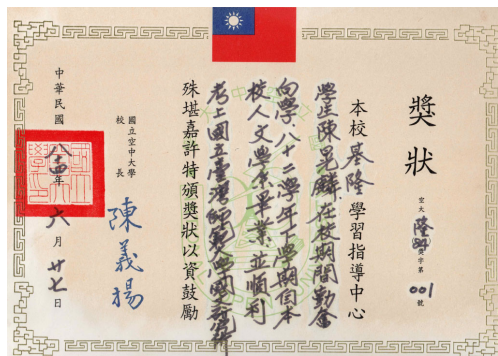 獎狀
空大隆獎字第001號
本校基隆學習指導中心
學生陳晃麟在校期間勤奮
向學八十二學年下學期自本
校人文學系畢業並順利
考上國立臺灣師範大學國文研究所
殊堪嘉許特頒獎狀以資鼓勵
國立空中大學
校長
陳義揚
中華民國八十四年六月廿七日